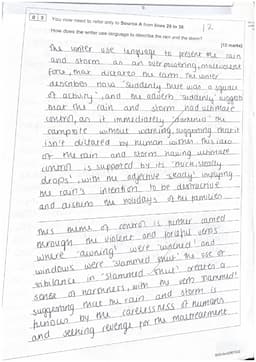 0 7 You now need to refer only to Source A from lines 20 to 30
12
How does the writer use language to describe the rain and the storm?
[12 marks]
The writer use language to present the rain
and storm as an overpowering, malevolent
force, that dictates the cam. The writer
describes how 'suddenly there was a squall
of activity', and the adverb 'suddenly' suggests
that the rain and storm had ultimate
control, as it immediately the
campsite without warning, suggesting that it
isn't dictated by human wishes. This idea
of the rain and storm having ultimate
control is supported by its 'thick, steady
drops', with the adjective 'steady' implying
the rain's intention to be destructive
and disturb the holidays of the families
This theme of control is further aimed
through the violent and forceful verbs
where 'awning' were and
windows were 'slammed shut' the use of
sibilance in 'slammed shut' creates a
sense of harshness, with the verb 'slammed'
suggesting that the rain and storm is
furious by the carelessness of humans
and seeking revenge for the maltreatment.